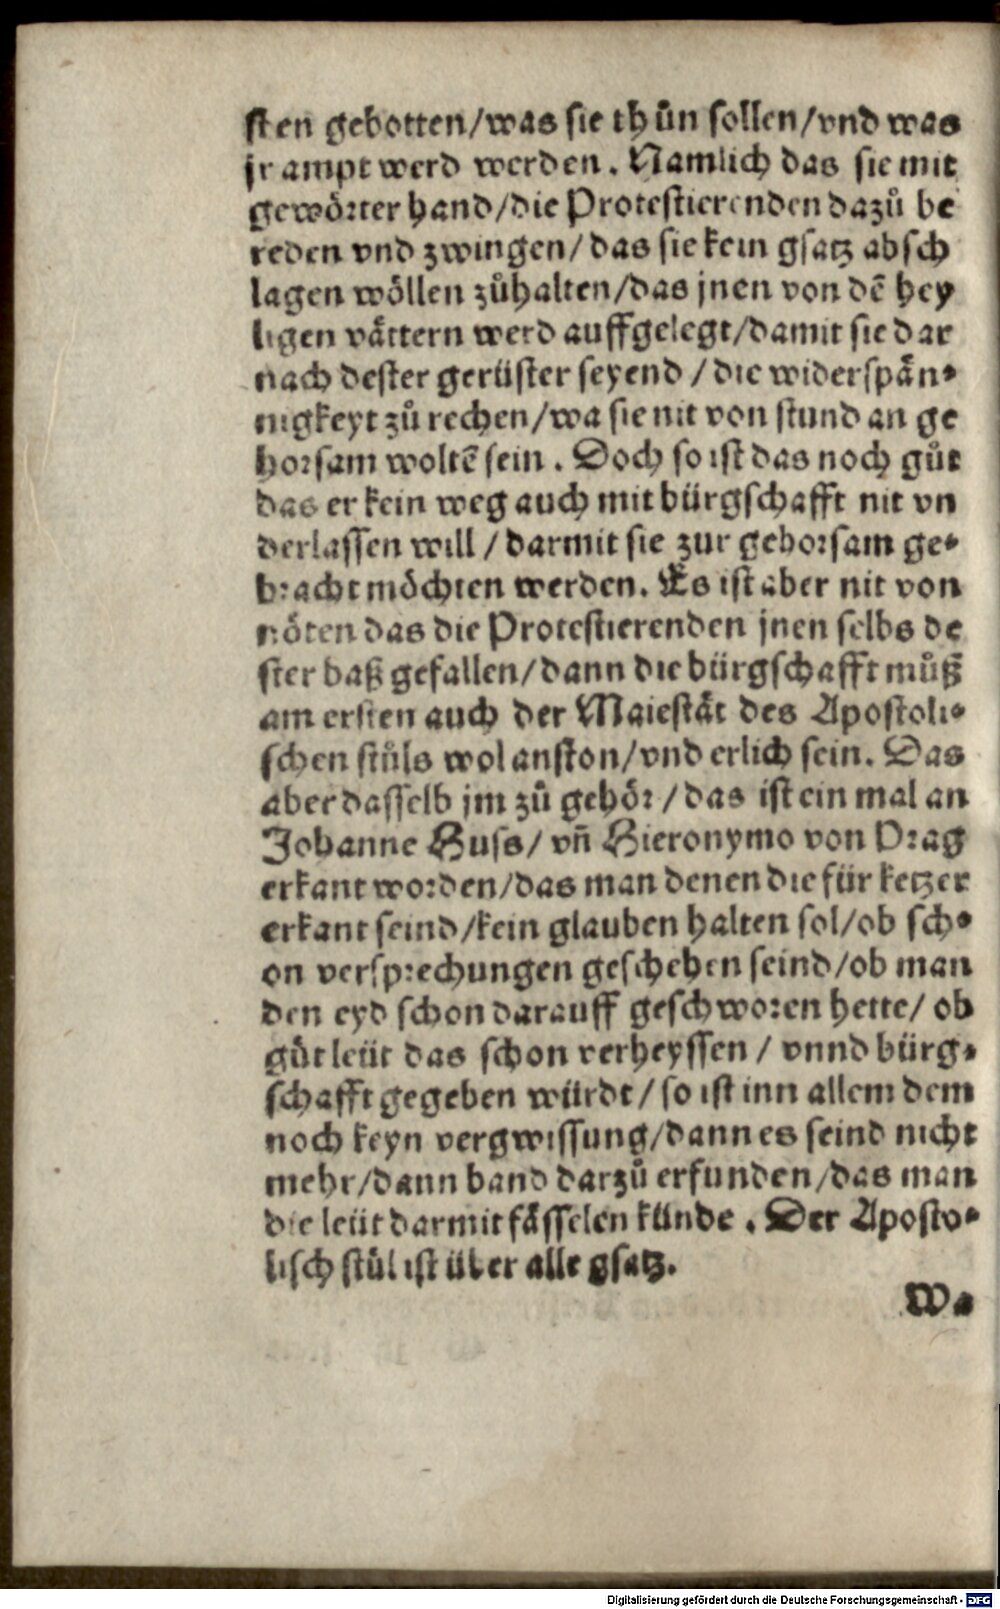 sten gebotten/was sie thůn sollen/vnd was
jr ampt werd werden. Namlich das sie mit
gewörter hand/die Protestierenden dazů be
reden vnd zwingen/das sie kein gsatz absch
lagen wöllen zůhalten/das jnen von dē hey
ligen vättern werd auffgelegt/damit sie dar
nach dester gerüster seyend/die widerspän-
nigkeyt zů rechen/wa sie nit von stund an ge
horsam woltē sein. Doch so ist das noch gůt
das er kein weg auch mit bürgschafft nit vn
derlassen will/darmit sie zur gehorsam ge-
bracht möchten werden. Es ist aber nit von
nöten das die Protestierenden jnen selbs de
ster baß gefallen/dann die bürgschafft můß
am ersten auch der Maiestät des Apostoli-
schen stůls wol anston/vnd erlich sein. Das
aber dasselb jm zů gehör/das ist ein mal an
Johanne Huss/vñ Hieronymo von Prag
erkant worden/das man denen die für ketzer
erkant seind/kein glauben halten sol/ob sch-
on versprechungen geschehen seind/ob man
den eyd schon darauff geschworen hette/ob
gůt leüt das schon verheyssen/vnnd bürg-
schafft gegeben würdt/so ist inn allem dem
noch keyn vergwissung/dann es seind nicht
mehr/dann band darzů erfunden/das man
die leüt darmit fässelen künde. Der Aposto-
lisch stůl ist über alle gsatz.
Wa
Digitalisierung gefördert durch die Deutsche Forschungsgemeinschaft - DFG